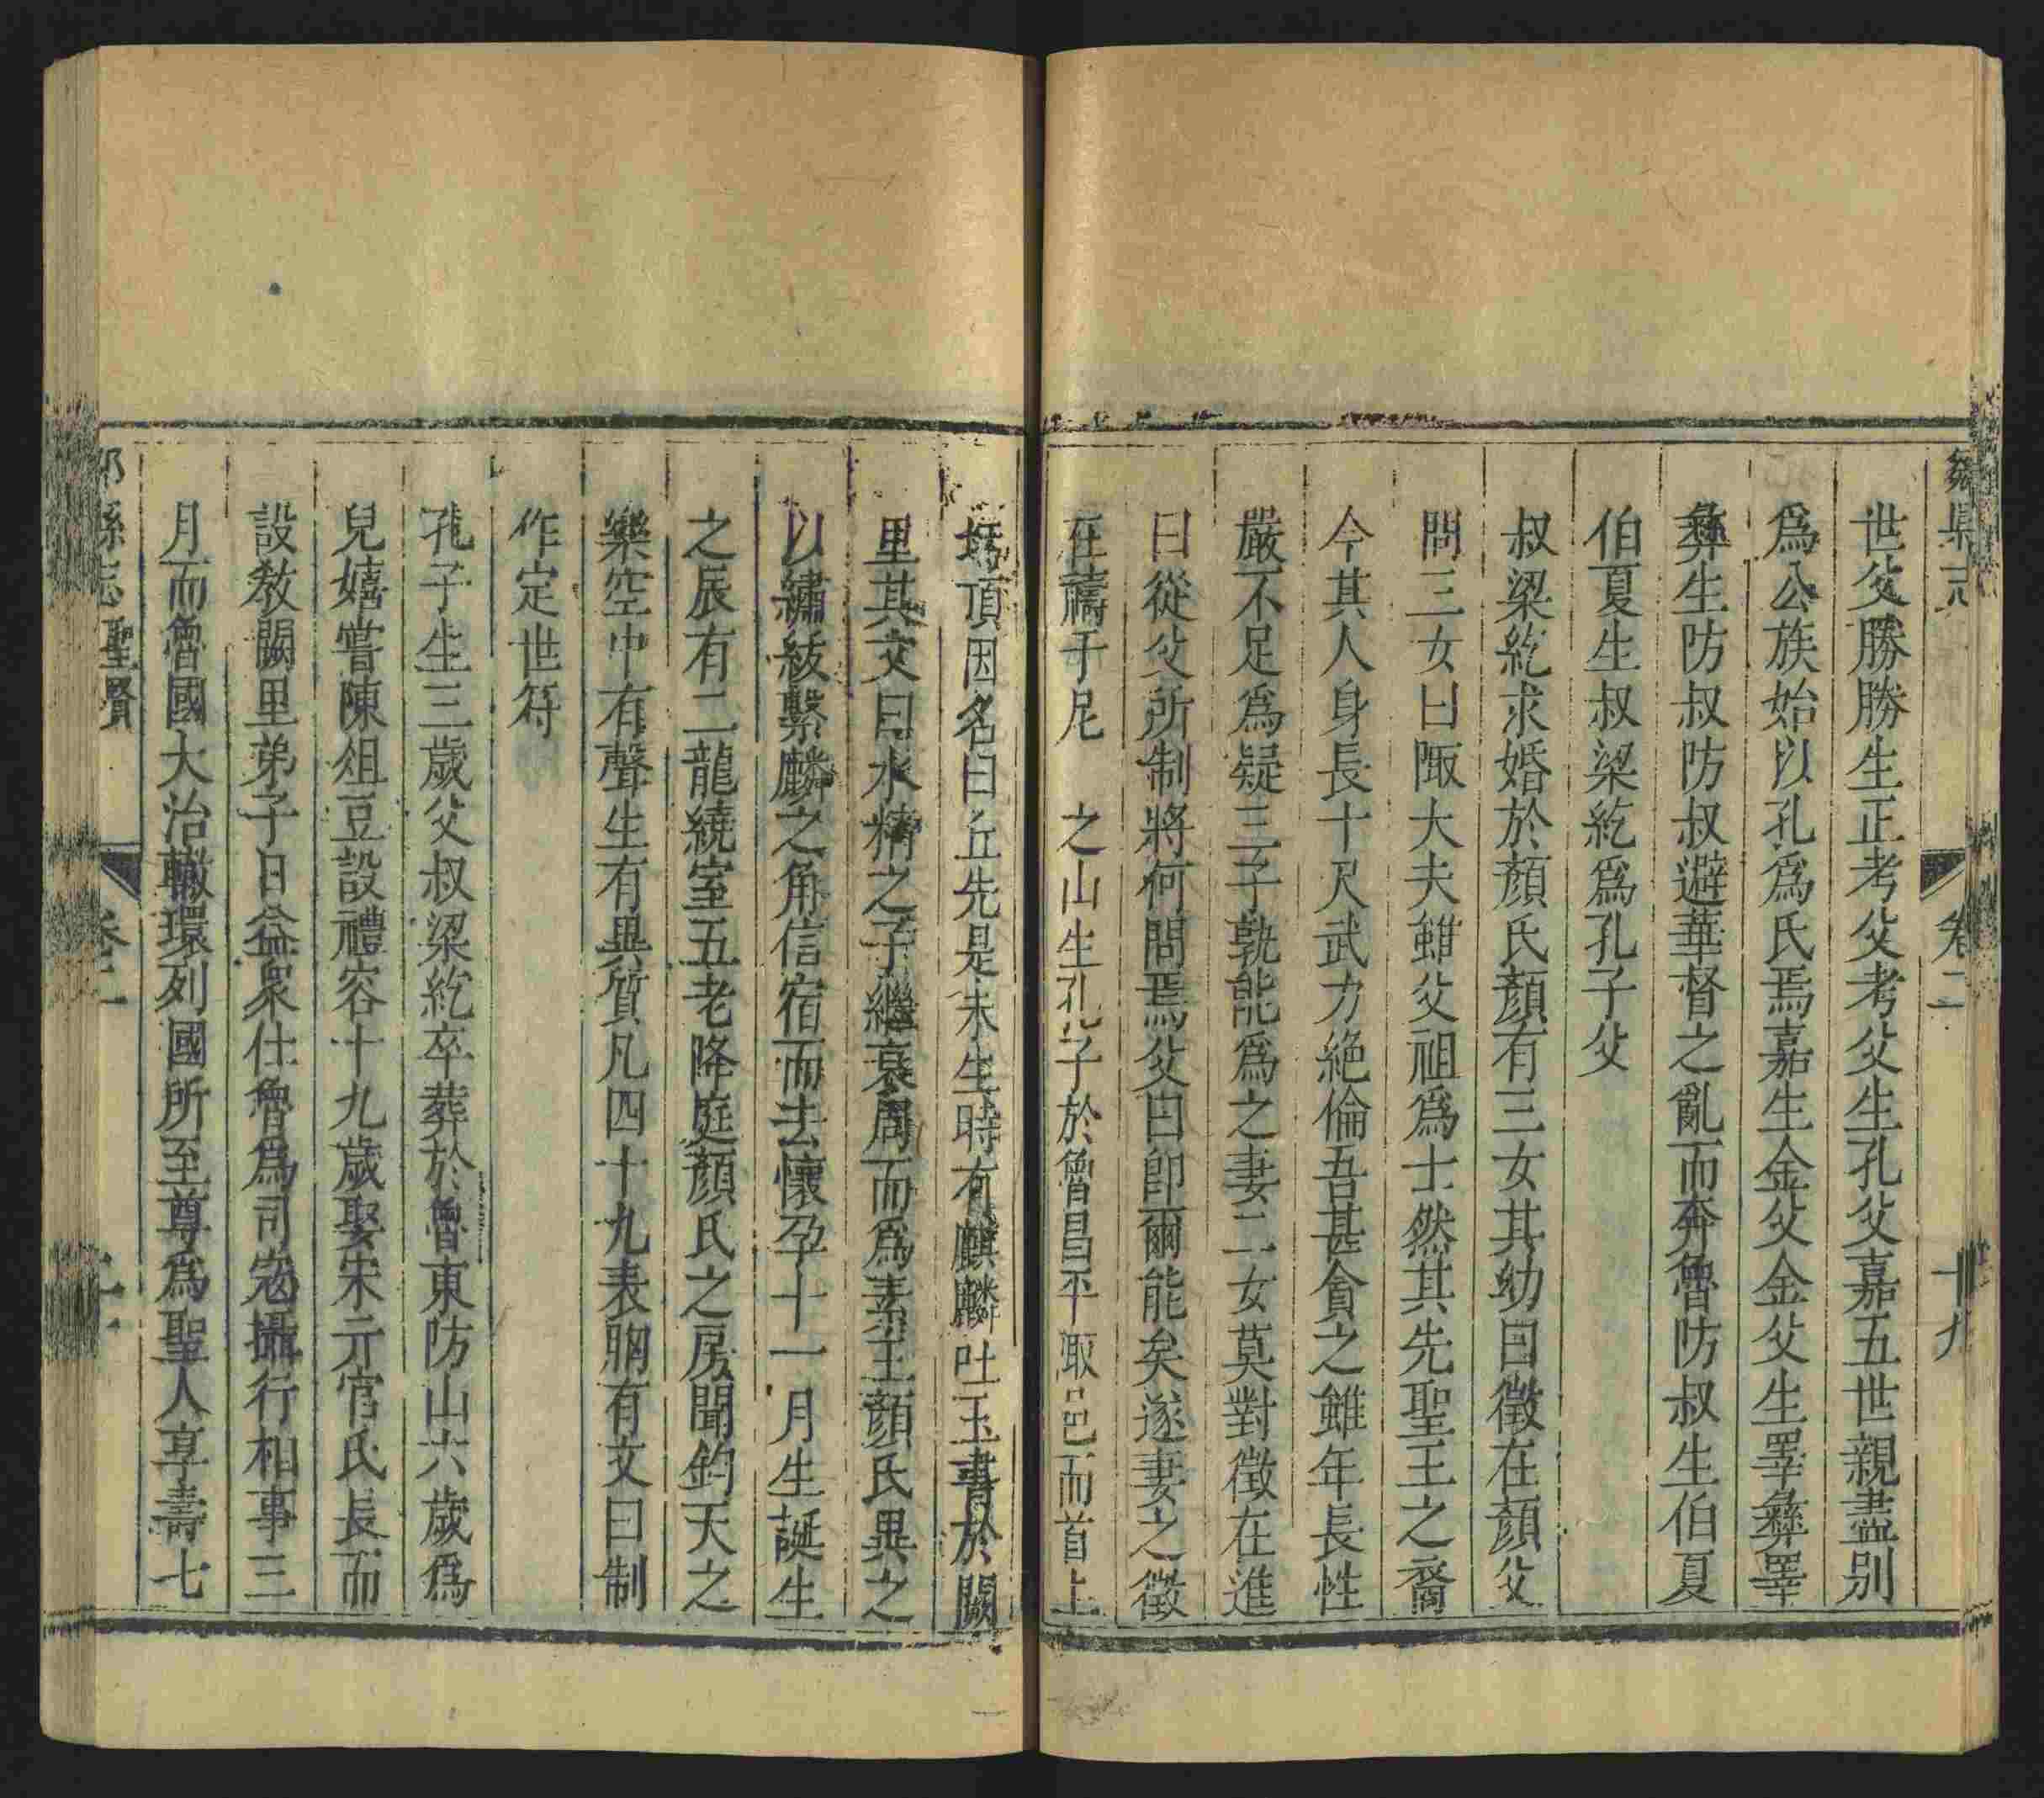 鄒縣志 卷二 十九
世父勝勝生正考父考父生孔父嘉五世親盡别
爲公族始以孔爲氏焉嘉生金父金父生睪彝睪
彝生防叔防叔避華督之亂而奔魯防叔生伯夏
伯夏生叔梁紇爲孔子父
叔梁紇求婚於顏氏顏有三女其幼曰徵在顏父
問三女曰陬大夫雖父祖爲士然其先聖王之裔
今其人身長十尺武力絶倫吾甚貪之雖年長性
嚴不足爲疑三子孰能爲之妻二女莫對徵在進
曰從父所制將何問焉父曰卽爾能矣遂妻之徵
在禱于尼 之山生孔子於魯昌平陬邑而首上
圩頂因名曰丘先是未生時有麒麟吐玉書於闕
里其文曰水精之子繼衰周而爲素王顏氏異之
以繡紱繫麟之角信宿而去懷孕十一月生誕生
之辰有二龍繞室五老降庭顏氏之房聞鈞天之
樂空中有聲生有異質凡四十九表胸有文曰制
作定世符
孔子生三歲父叔梁紇卒葬於魯東防山六歲爲
兒嬉嘗陳俎豆設禮容十九歲娶宋亓官氏長而
設敎闕里弟子日益衆仕魯爲司寇攝行相事三
月而魯國大治轍環列國所至尊爲聖人享壽七
縣志 聖賢 卷二